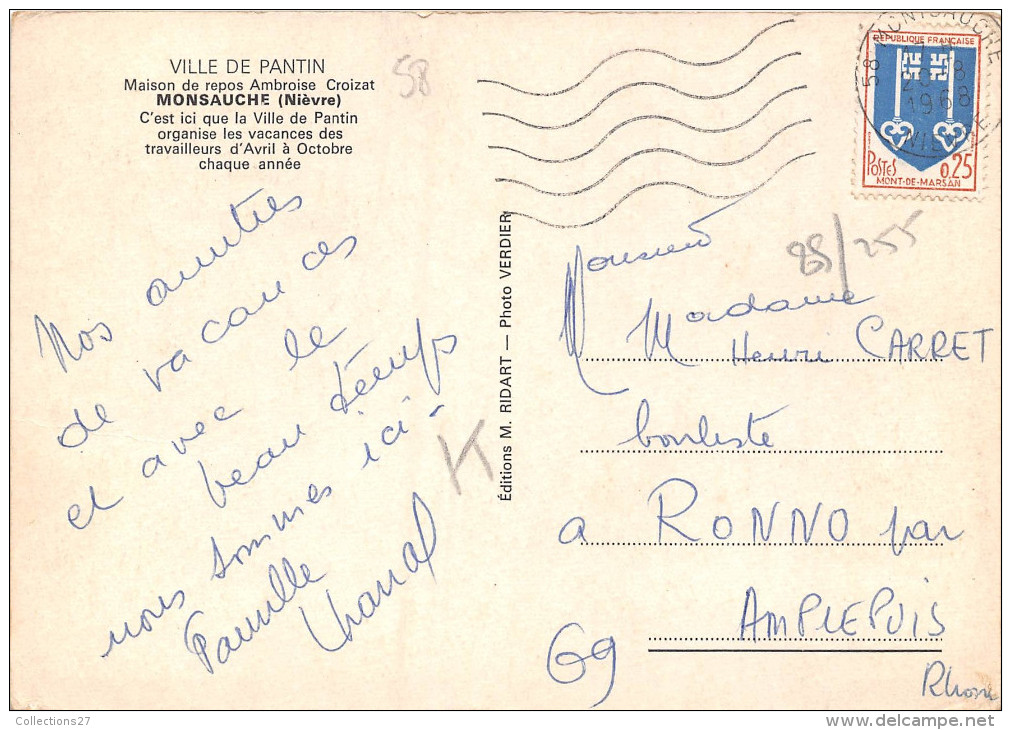 VILLE DE PANTIN
Maison de repos Ambroise Croizat
MONSAUCHE (Nièvre)
C'est ici que la Ville de Pantin
organise les vacances des
travailleurs d'Avril à Octobre
chaque année
58
Nos
de vacances
et avec le
beau temps
nous sommes ici -
Famille
K
Éditions M. RIDART — Photo VERDIER
58 MONTSAUCHE
1968
NIEVRE
REPUBLIQUE FRANÇAISE
POSTES 0,25
MONT-DE-MARSAN
88/255
Monsieur
Madame
Henri CARRET
bouliste
a RONNO par
AMPLEPUIS
69
Rhone
Collections27
delcampe.net